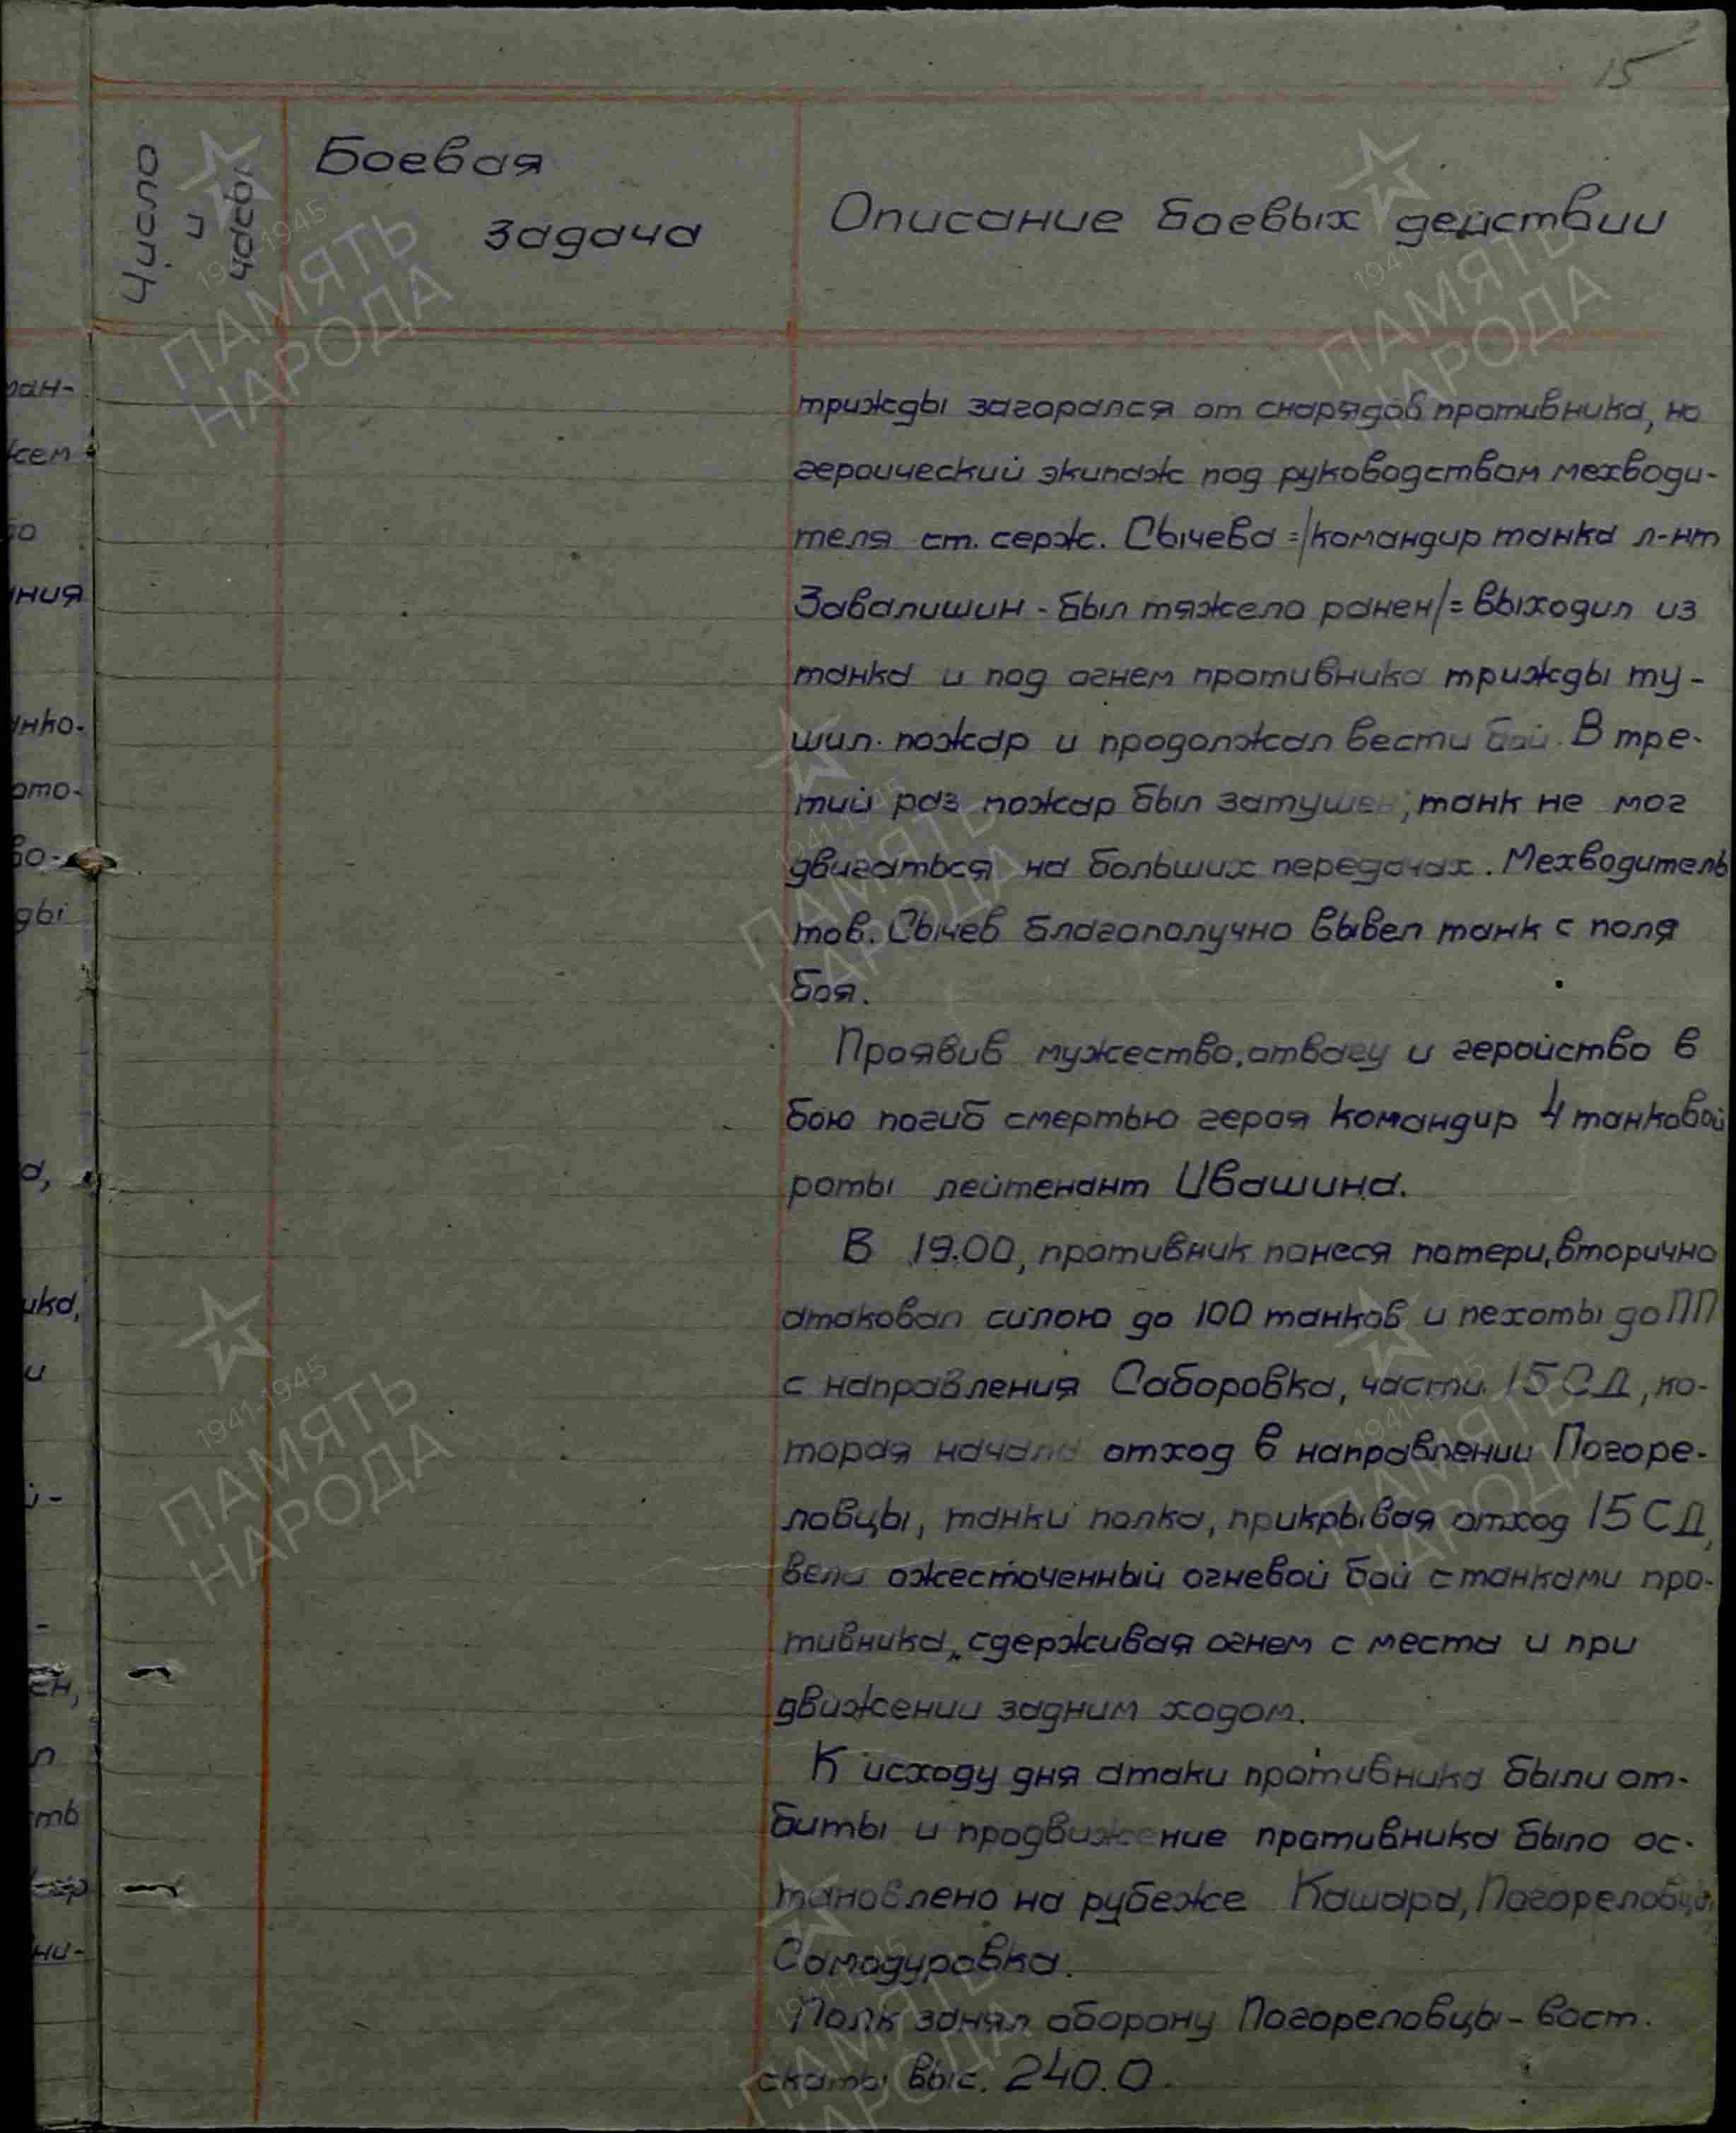 15
Число и часы
Боевая задача
Описание боевых действии
трижды загорался от снарядов противника, но
героический экипаж под руководством мехводи-
теля ст. серж. Сычева =/командир танка л-нт
Завалишин - был тяжело ранен/= выходил из
танка и под огнем противника трижды ту-
шил пожар и продолжал вести бой. В тре-
тий раз пожар был затушен, танк не мог
двигаться на больших передачах. Мехводитель
тов. Сычев благополучно вывел танк с поля
боя.
Проявив мужество, отвагу и геройство в
бою погиб смертью героя командир 4 танковой
роты лейтенант Ивашина.
В 19.00, противник понеся потери, вторично
атаковал силою до 100 танков и пехоты до ПП
с направления Саборовка, части 15 СД, ко-
торая начала отход в направлении Погоре-
ловцы, танки полка, прикрывая отход 15 СД,
вели ожесточенный огневой бой с танками про-
тивника, сдерживая огнем с места и при
движении задним ходом.
К исходу дня атаки противника были от-
биты и продвижение противника было ос-
тановлено на рубеже Кашара, Погореловцы,
Самодуровка.
Полк занял оборону Погореловцы - вост.
скаты выс. 240.0.
ман-
жем
бо
ния
нко-
ото-
во-
ды
а,
ика,
и
й-
-
ен,
л
ть
ни-
1941-1945
ПАМЯТЬ
НАРОДА
1941-1945
ПАМЯТЬ
НАРОДА
1941-1945
ПАМЯТЬ
НАРОДА
1941-1945
ПАМЯТЬ
НАРОДА
1941-1945
ПАМЯТЬ
НАРОДА
1941-1945
ПАМЯТЬ
НАРОДА